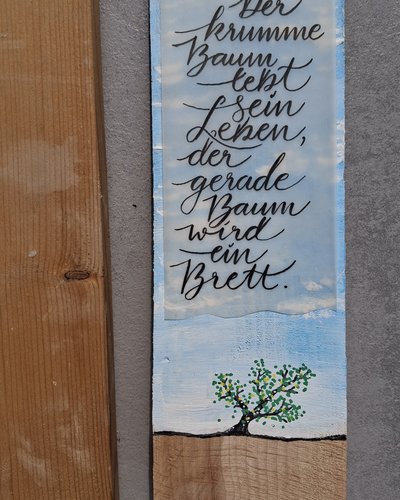 Der
krumme
Baum
lebt
sein
Leben,
der
gerade
Baum
wird
ein
Brett.